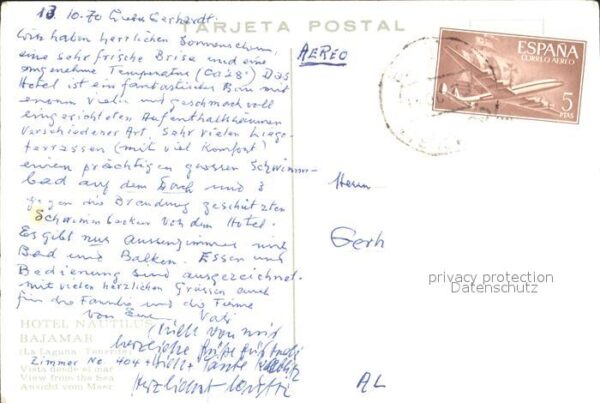 TARJETA POSTAL
13.10.70 Lieber Gerhardt.
Wir haben herrlichen Sonnenschein,
eine sehr frische Brise und eine
angenehme Temperatur (ca 28°) Das
Hotel ist ein fantastischer Bau mit
enorm vielen und geschmackvoll
eingerichteten Aufenthaltsräumen
verschiedener Art, sehr vielen Liege-
terrassen (mit viel Komfort)
einen prächtigen grossen Schwimm-
bad auf dem Dach und 3
gegen die Brandung geschützten
Schwimmbecken vor dem Hotel.
Es gibt nur Aussenzimmer mit
Bad und Balkon. Essen und
Bedienung sind ausgezeichnet.
mit vielen herzlichen Grüssen auch
für die Familie und die Firma
von Vati
von mir
herzliche Grüße
Zimmer No 404 + Tante
Herzlichst
HOTEL NAUTILUS
BAJAMAR
(La Laguna, Tenerife)
Vista desde el mar
View from the Sea
Ansicht vom Meer
AEREO
ESPAÑA
CORREO AEREO
5
PTAS
Herrn
Gerh
privacy protection
Datenschutz
AL